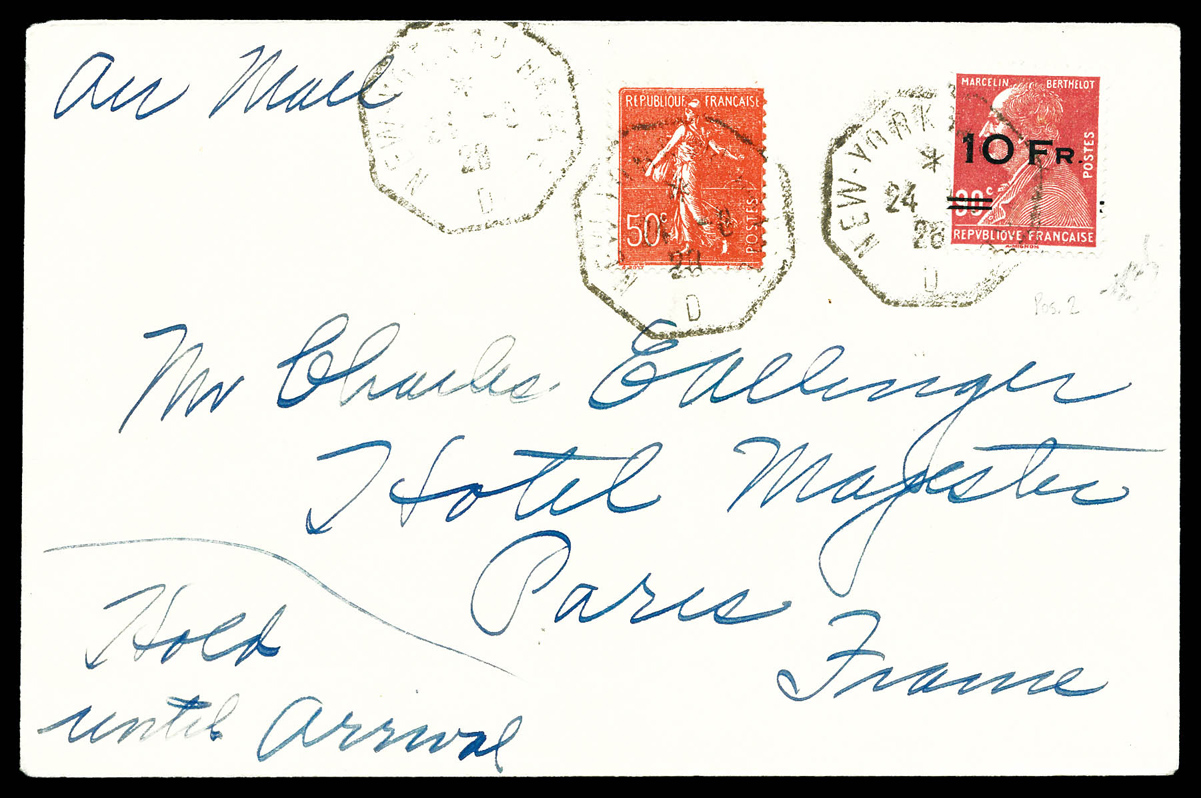 Air Mail
NEW-YORK AU HAVRE
*
28
D
REPUBLIQUE FRANÇAISE
50c
POSTES
*
-8
28
D
MARCELIN BERTHELOT
10 FR.
90c
POSTES
REPVBLIQVE FRANÇAISE
NEW-YORK
*
24
28
D
Pos. 2
Mr Charles Eallinger
Hotel Majestic
Paris
France
Hold
until Arrival